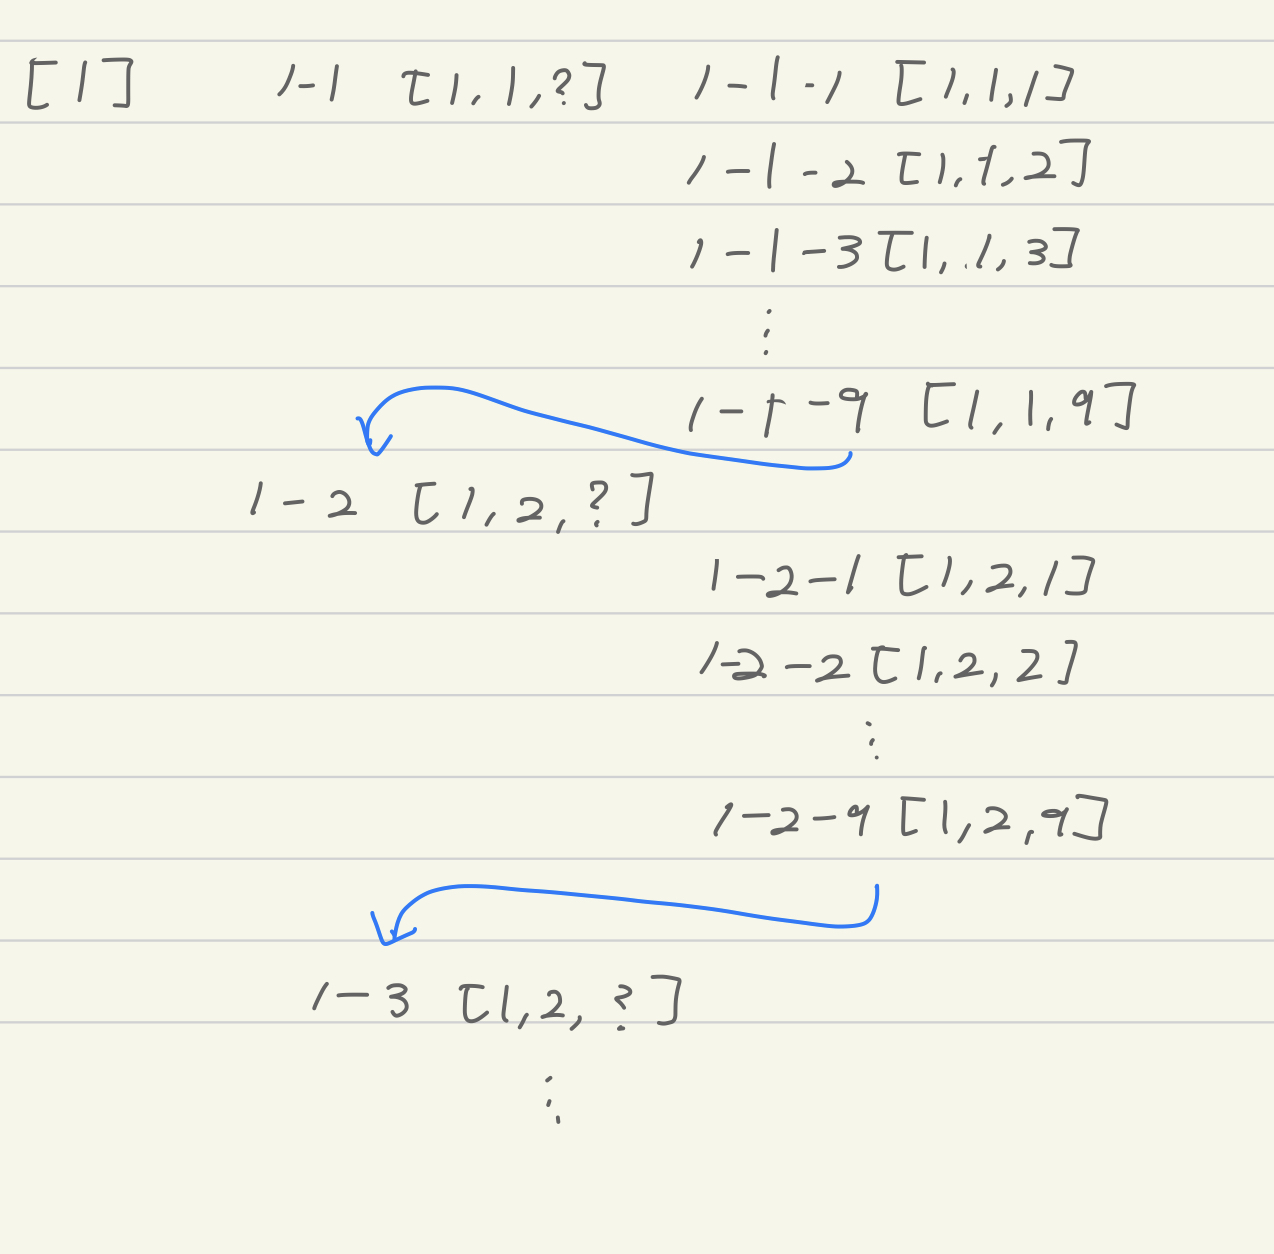 [1] 1-1 [1,1,?] 1-1-1 [1,1,1]
1-1-2 [1,1,2]
1-1-3 [1,1,3]
⋮
1-1-9 [1,1,9]
1-2 [1,2,?]
1-2-1 [1,2,1]
1-2-2 [1,2,2]
⋮
1-2-9 [1,2,9]
1-3 [1,2,?]
⋮